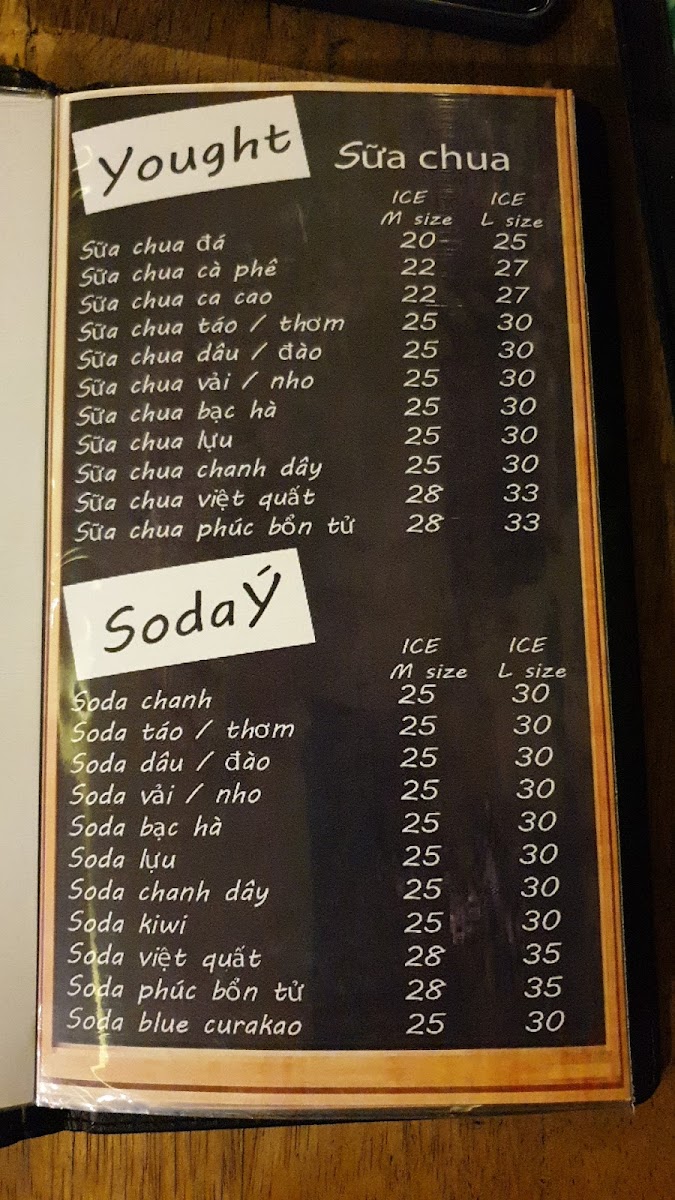 Yought Sữa chua
ICE ICE
M size L size
Sữa chua đá 20 25
Sữa chua cà phê 22 27
Sữa chua ca cao 22 27
Sữa chua táo / thơm 25 30
Sữa chua dâu / đào 25 30
Sữa chua vải / nho 25 30
Sữa chua bạc hà 25 30
Sữa chua lựu 25 30
Sữa chua chanh dây 25 30
Sữa chua việt quất 28 33
Sữa chua phúc bổn tử 28 33
Soda Ý
ICE ICE
M size L size
Soda chanh 25 30
Soda táo / thơm 25 30
Soda dâu / đào 25 30
Soda vải / nho 25 30
Soda bạc hà 25 30
Soda lựu 25 30
Soda chanh dây 25 30
Soda kiwi 25 30
Soda việt quất 28 35
Soda phúc bổn tử 28 35
Soda blue curakao 25 30